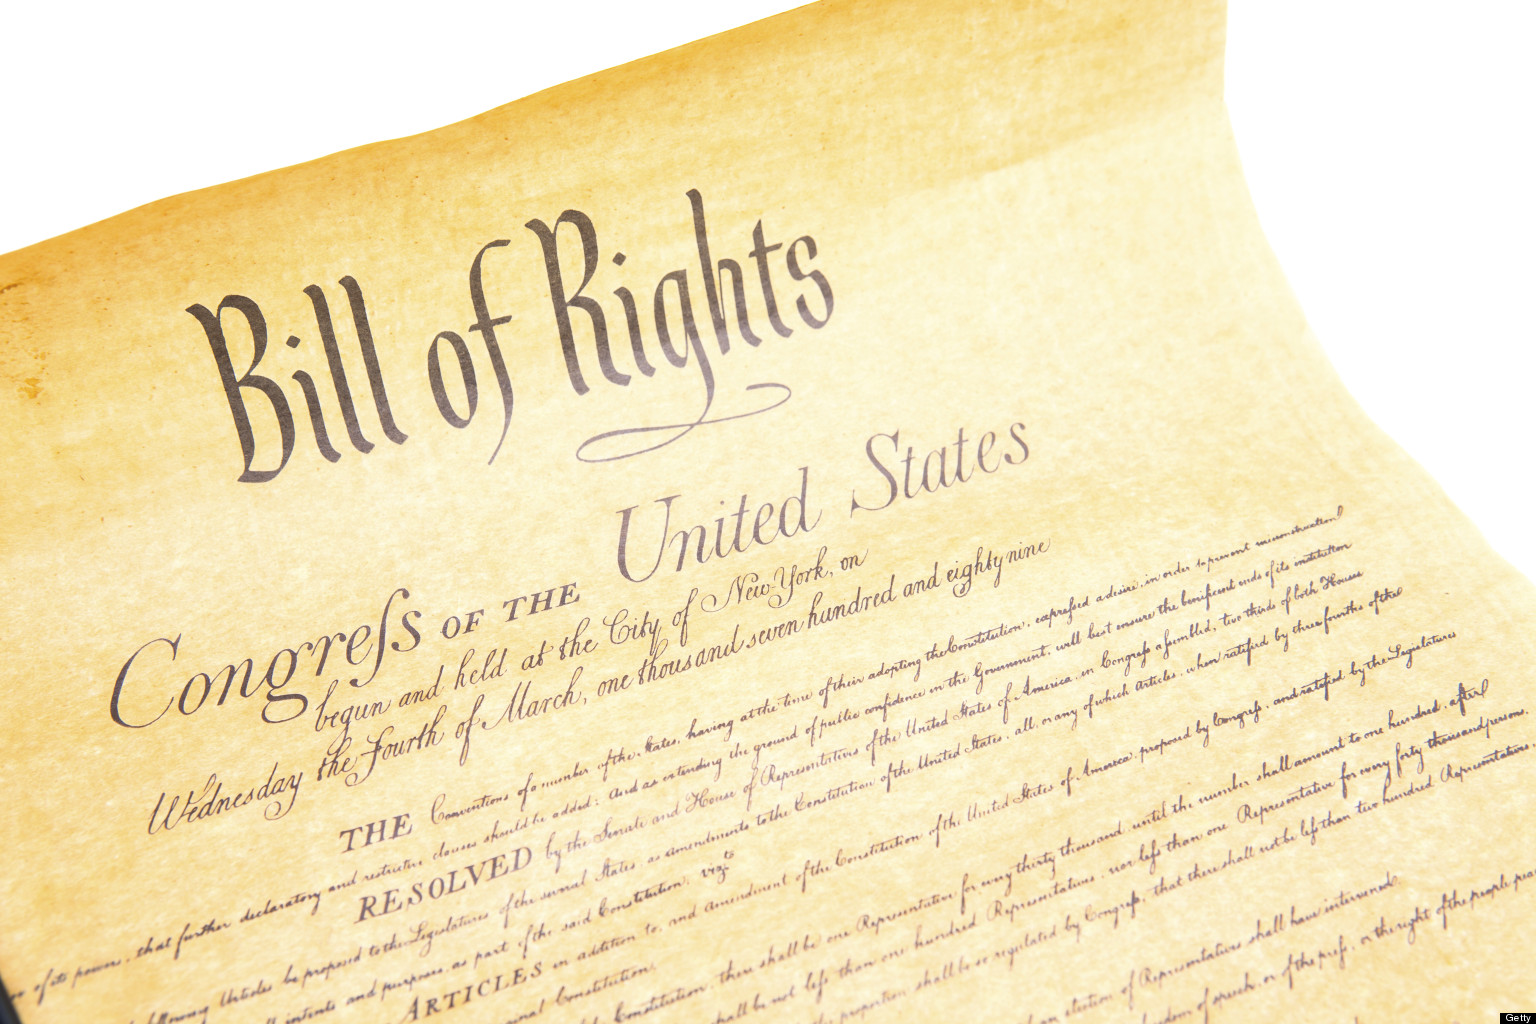 Bill of Rights
Congreſs OF THE United States
begun and held at the City of New-York, on
Wednesday the Fourth of March, one thousand seven hundred and eighty nine
THE Conventions of a number of the States, having at the time of their adopting the Constitution, expreſsed a desire, in order to prevent misconstruction
of its powers, that further declaratory and restrictive clauses should be added: And as extending the ground of public confidence in the Government, will best ensure the beneficent ends of its institution
RESOLVED by the Senate and House of Representatives of the United States of America, in Congreſs aſsembled, two thirds of both Houses
following Articles be proposed to the Legislatures of the several States, as amendments to the Constitution of the United States, all, or any of which Articles, when ratified by three fourths of the
intents and purposes, as part of the said Constitution, vizt
ARTICLES in addition to, and amendment of the Constitution of the United States of America, proposed by Congreſs, and ratified by the Legislatures
Constitution.
Constitution, there shall be one Representative for every thirty thousand, until the number shall amount to one hundred, after
shall be not leſs than one hundred Representatives, nor leſs than one Representative for every forty thousand persons,
proportion shall be so regulated by Congreſs, that there shall not be leſs than two hundred Representatives,
an election of Representatives shall have intervened.
of speech, or of the preſs, or the right of the people
Getty